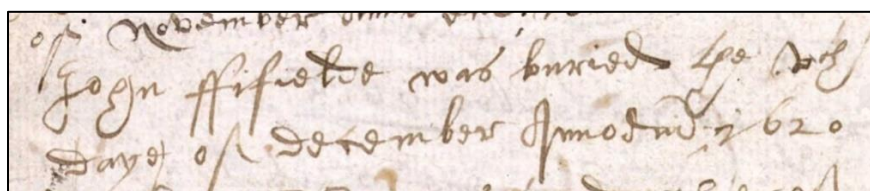 of November
John ffifielde was buried the
daye of december Annodni 1620